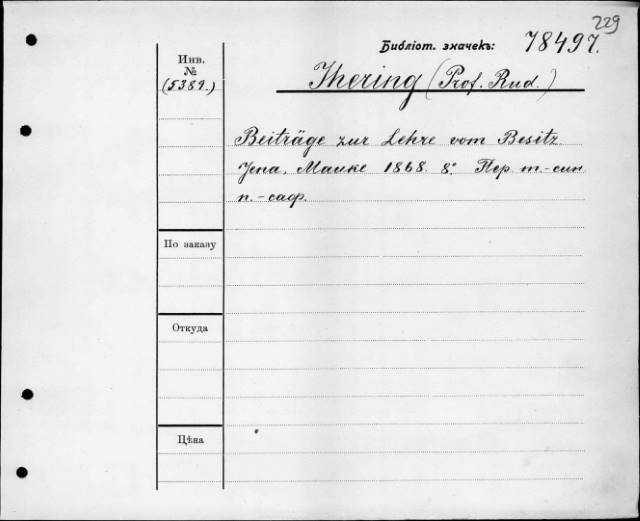 229
Библіот. значекъ: 78497.
Инв.
№
(5381.)
Jhering (Prof. Rud.)
Beiträge zur Lehre vom Besitz.
Jena, Mauke 1868. 8°. Пер. т.-син
п.-саф.
По заказу
Откуда
Цѣна